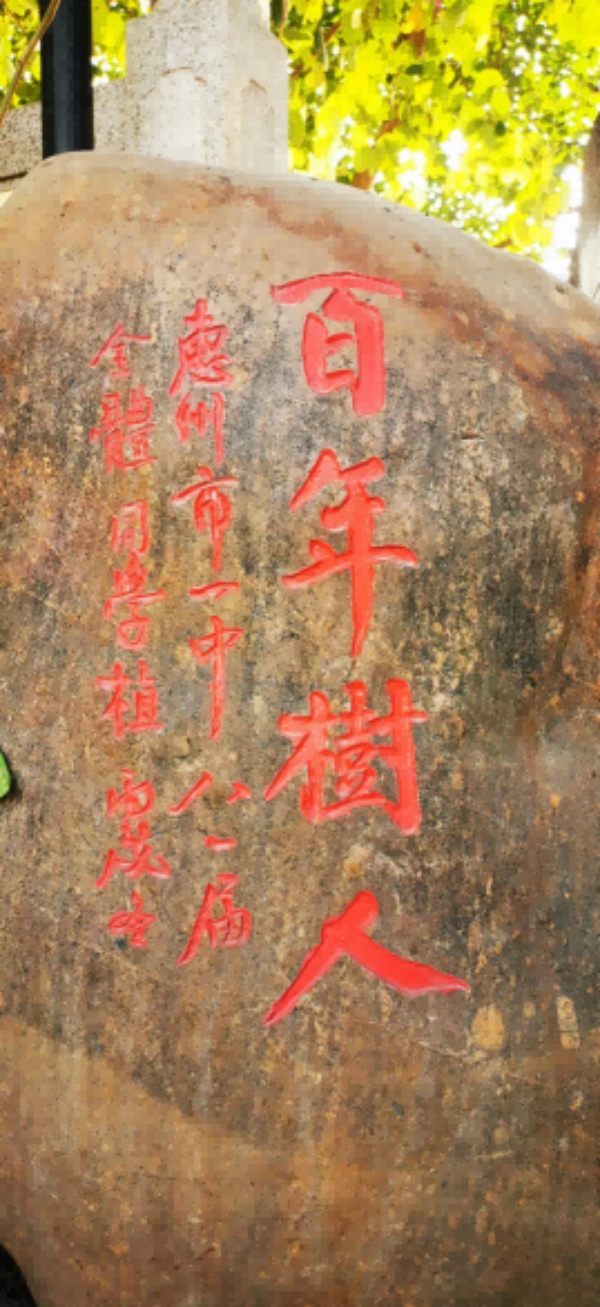 百年樹人
惠州市一中八一届
全體同學植 丙戌冬